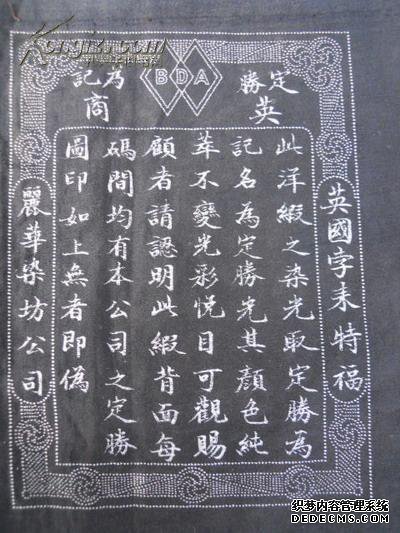 定勝
BDA
為記
英商
英國孛耒特福
此洋緞之染光取定勝為
記名為定勝光其顏色純
萃不變光彩悅目可觀賜
顧者請認明此緞背面每
碼間均有本公司之定勝
圖印如上無者即偽
麗華染坊公司
织梦内容管理系统
DEDECMS.COM